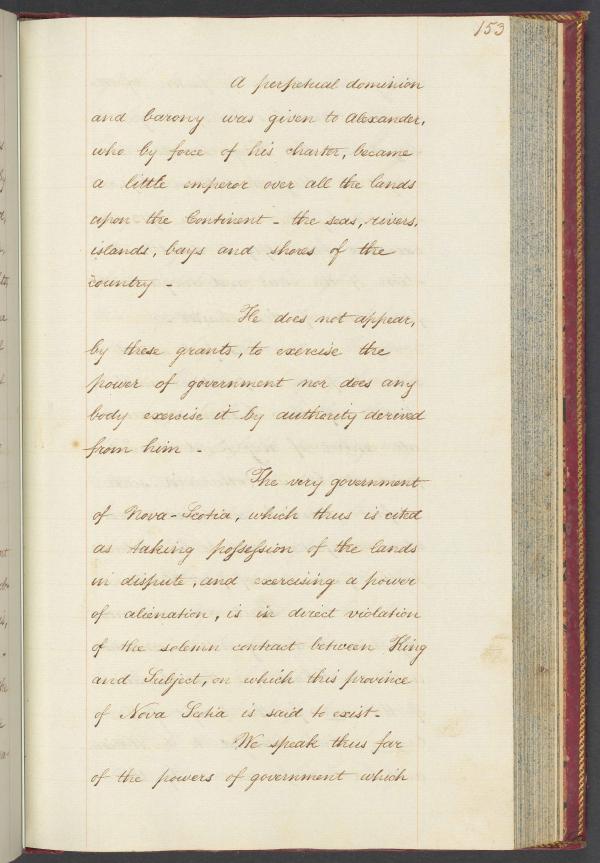 153
A perpetual dominion
and barony was given to Alexander,
who by force of his charter, became
a little emperor over all the lands
upon the Continent - the seas, rivers,
islands, bays and shores of the
country -
He does not appear,
by these grants, to exercise the
power of government nor does any
body exercise it by authority derived
from him -
The very government
of Nova-Scotia, which thus is cited
as taking possession of the lands
in dispute, and exercising a power
of alienation, is in direct violation
of the solemn contract between King
and Subject, on which this province
of Nova Scotia is said to exist -
We speak thus far
of the powers of government which